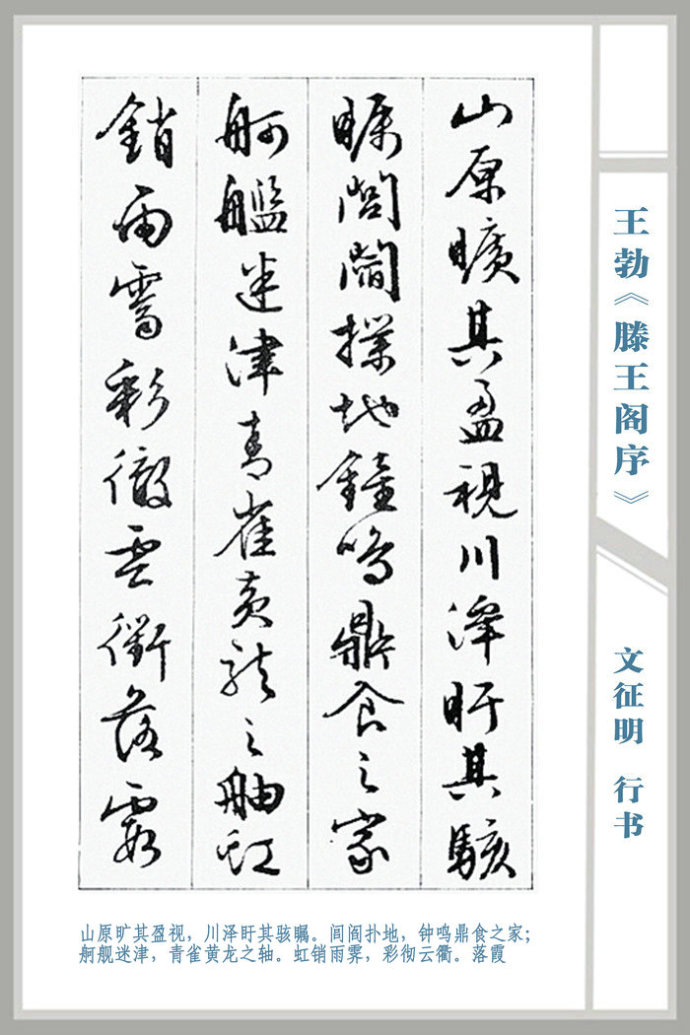 王勃《滕王阁序》
文征明 行书
山原曠其盈視川澤盱其駭
矚閭閻撲地鐘鳴鼎食之家
舸艦迷津青雀黄龍之舳虹
銷雨霽彩徹雲衢落霞
山原旷其盈视，川泽盱其骇瞩。闾阎扑地，钟鸣鼎食之家；
舸舰迷津，青雀黄龙之轴。虹销雨霁，彩彻云衢。落霞